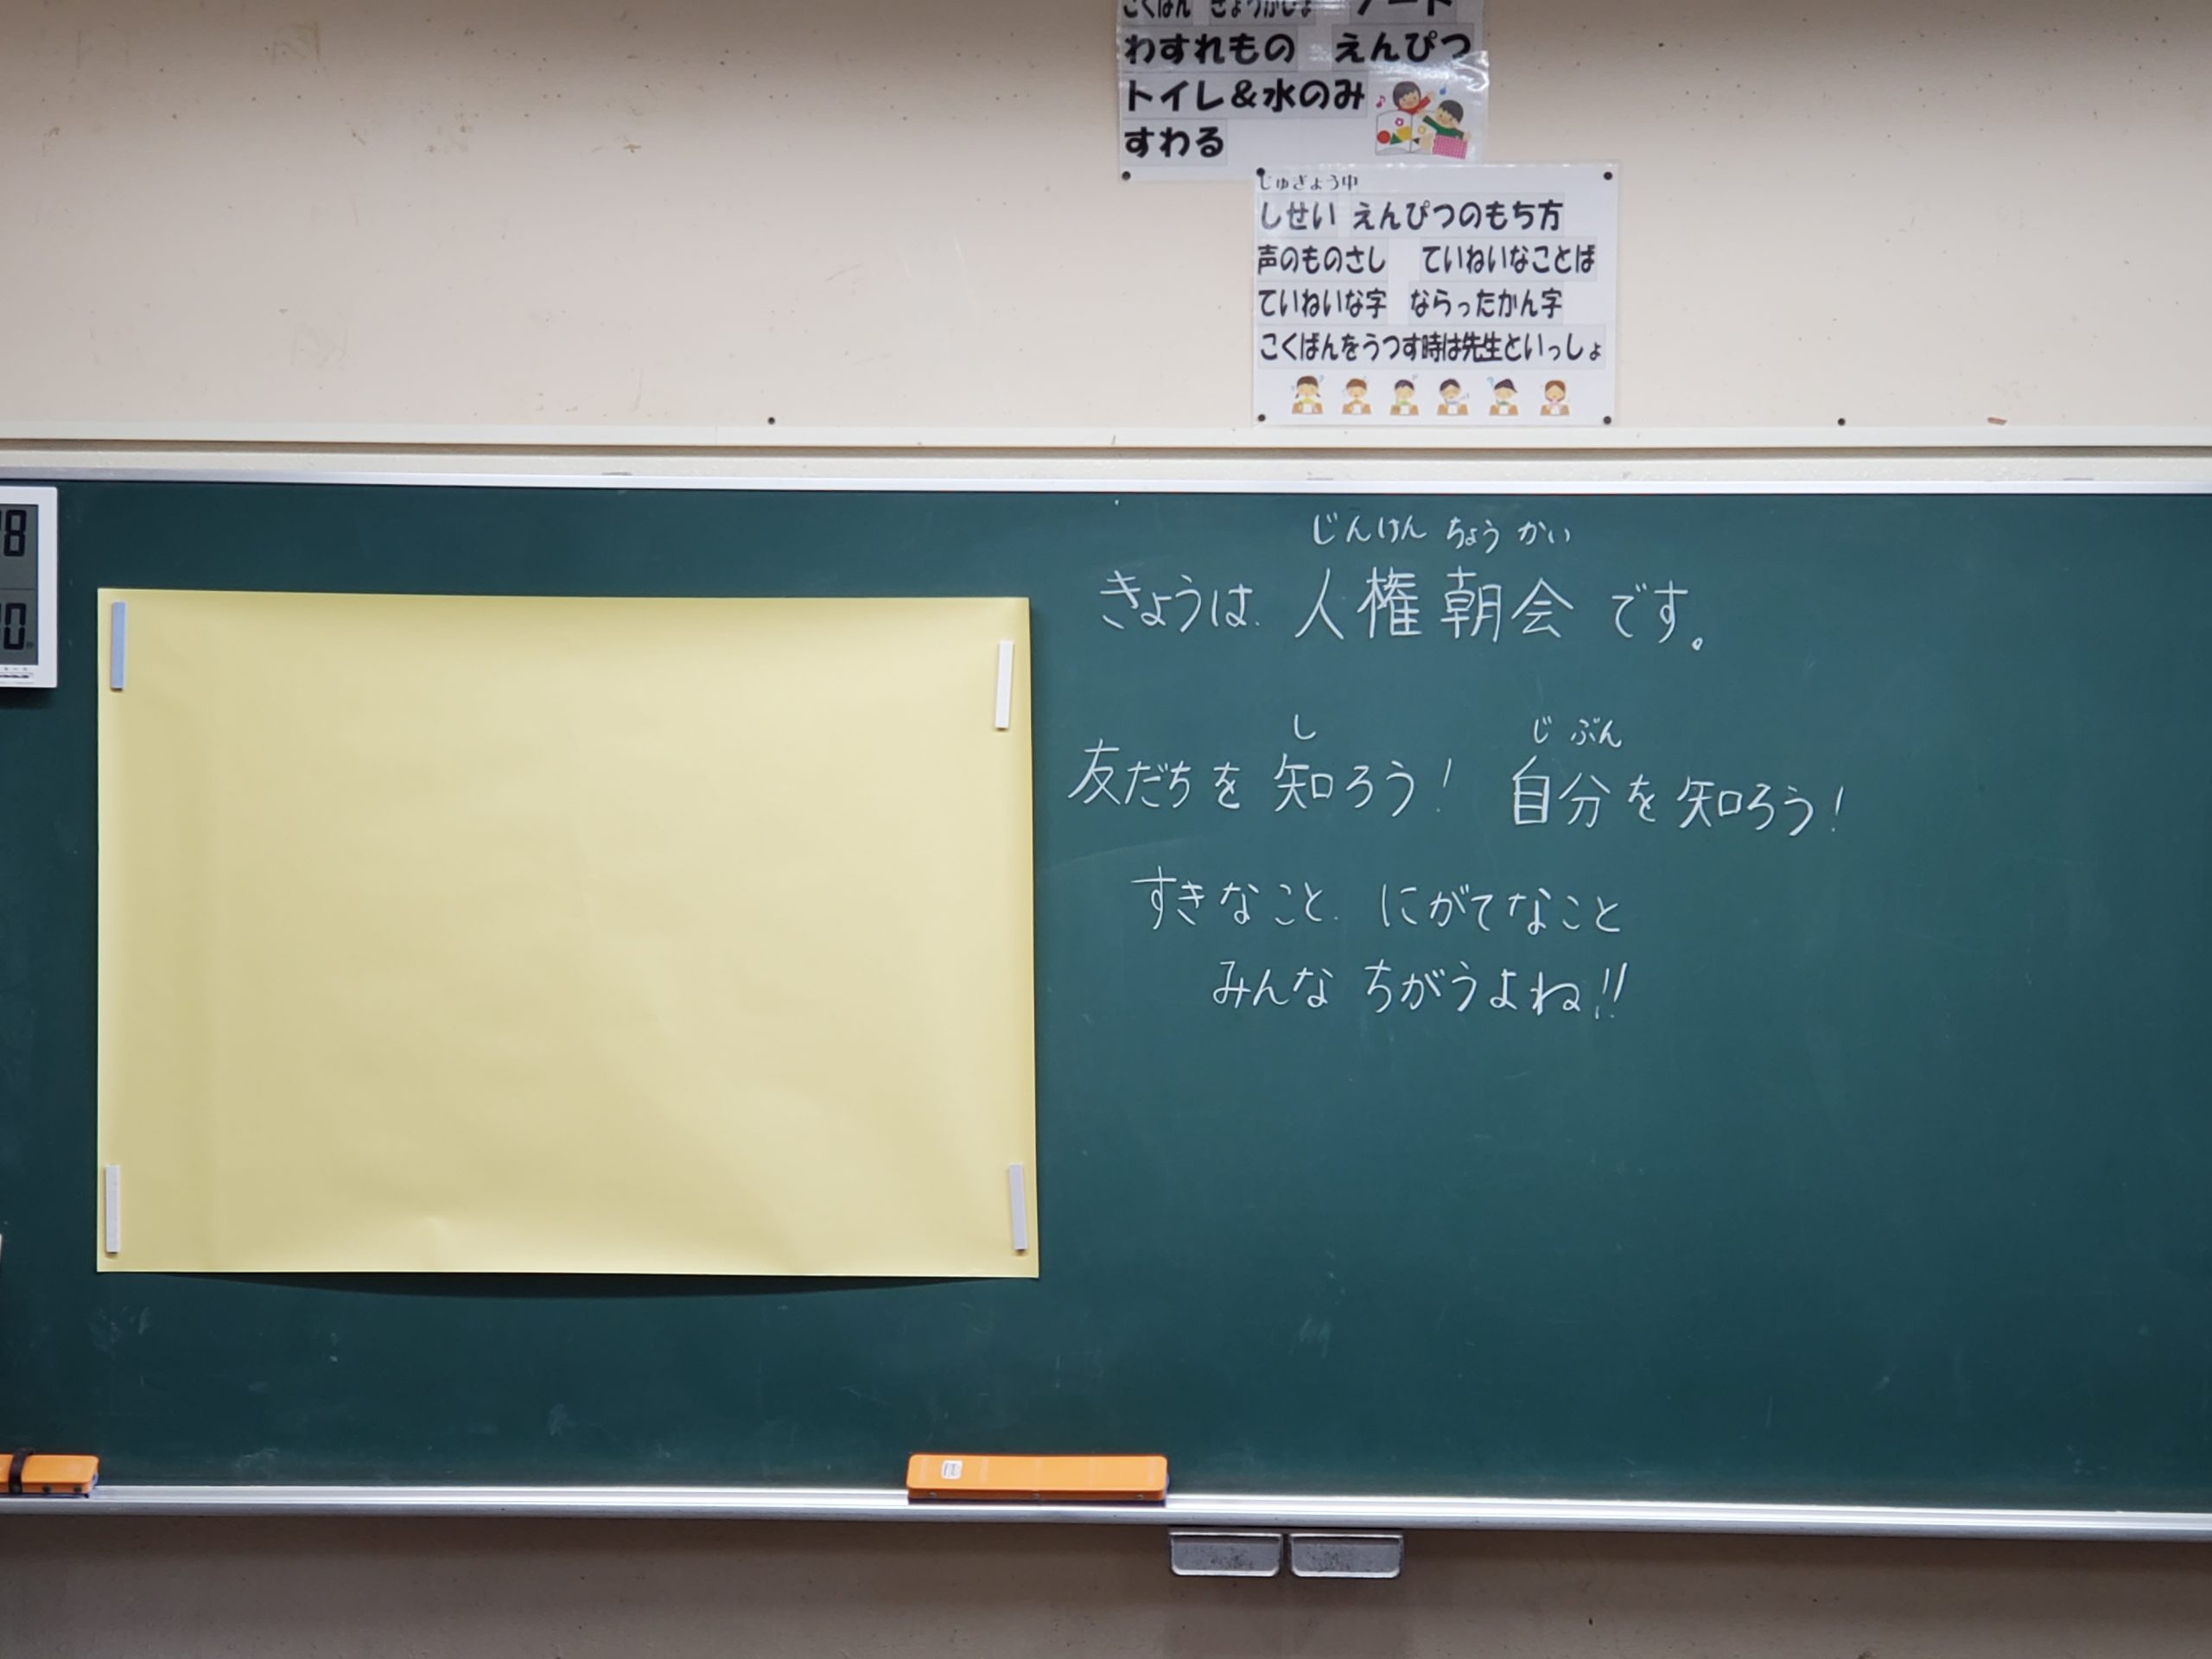 こくばん きょうかしょ ノート
わすれもの えんぴつ
トイレ&水のみ
すわる
じゅぎょう中
しせい えんぴつのもち方
声のものさし ていねいなことば
ていねいな字 ならったかん字
こくばんをうつす時は先生といっしょ
じんけん ちょう かい
きょうは、人権朝会です。
し じ ぶん
友だちを知ろう! 自分を知ろう!
すきなこと、にがてなこと
みんな ちがうよね!!